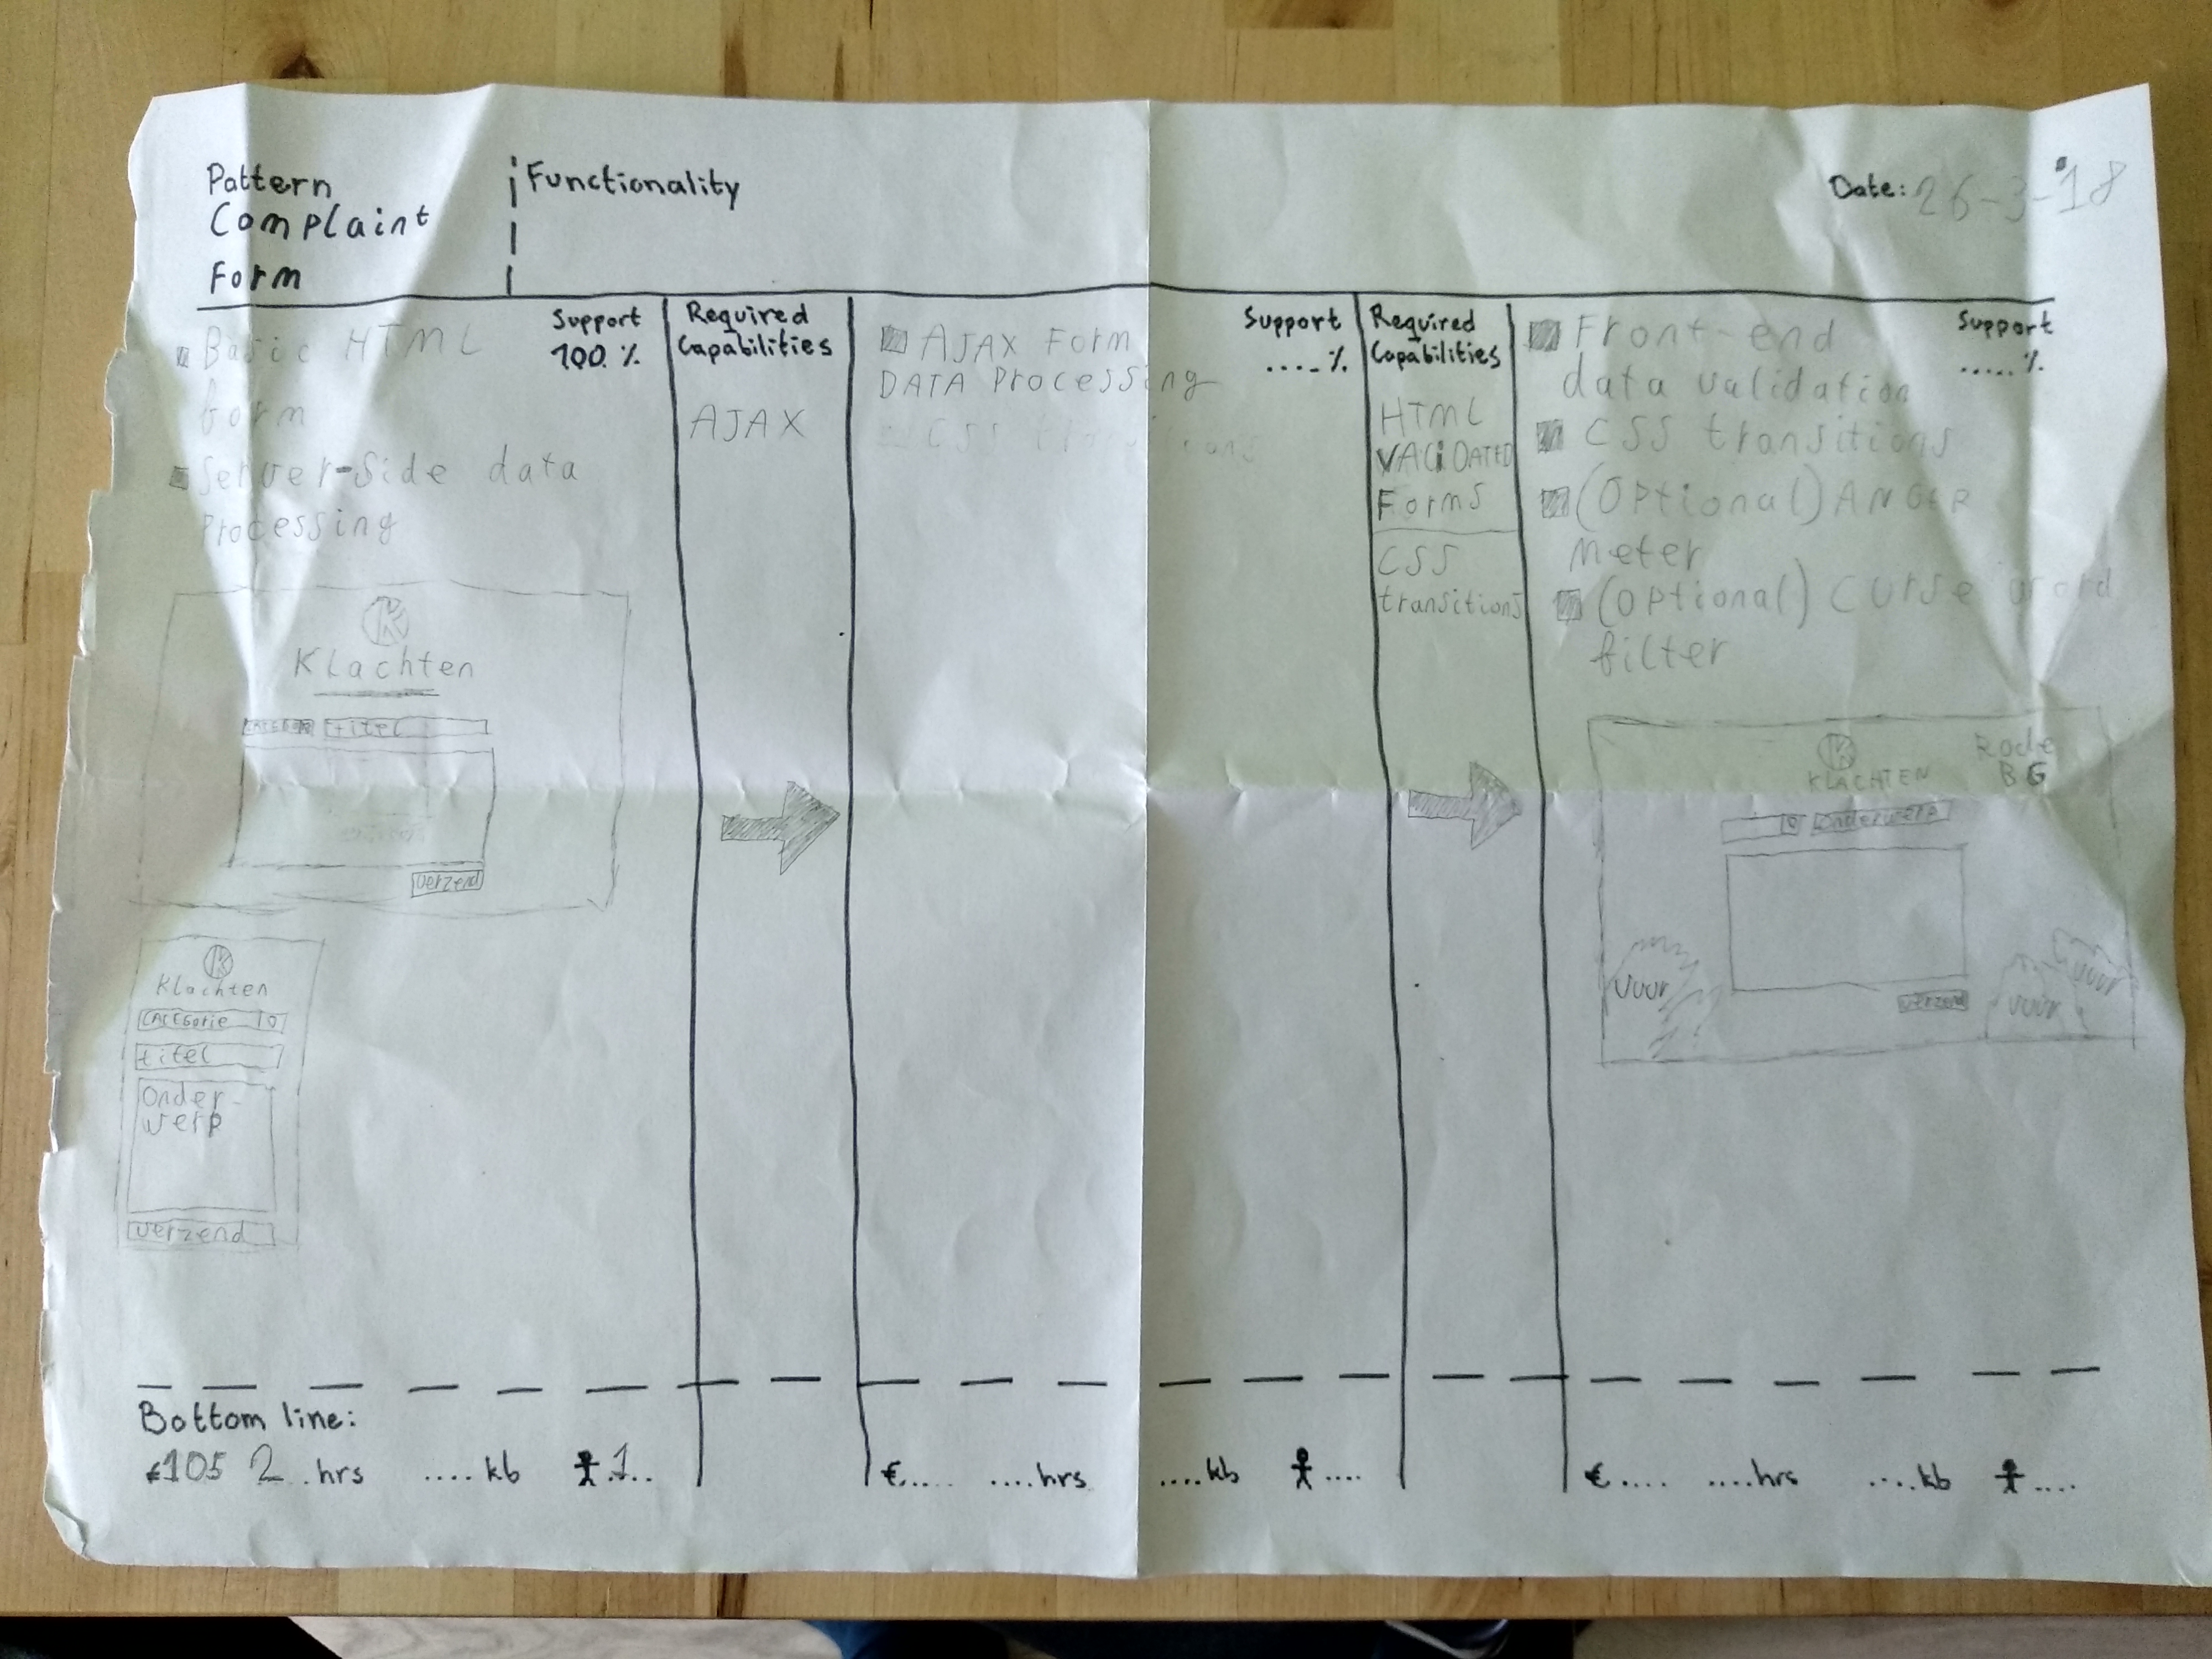 Pattern
Complaint
Form
Functionality
Date: 26-3-'18
Basic HTML
form
Server-side data
Processing
Support
100 %
K
Klachten
titel
verzend
K
Klachten
CATEGorie
titel
Onder-
werp
verzend
Required
Capabilities
AJAX
AJAX Form
DATA Processing
CSS transitions
Support
....%
Required
Capabilities
HTML
VALiDATED
Forms
CSS
transitions
Front-end
data validation
CSS transitions
(Optional) ANGER
meter
(Optional) Curse word
filter
Support
.....%
K
KLACHTEN
Rode
BG
Onderwerp
vuur
verzend
vuur
vuur
Bottom line:
€105 2..hrs ....kb 1...
€.... ....hrs ....kb ....
€.... ....hrs ....kb ....